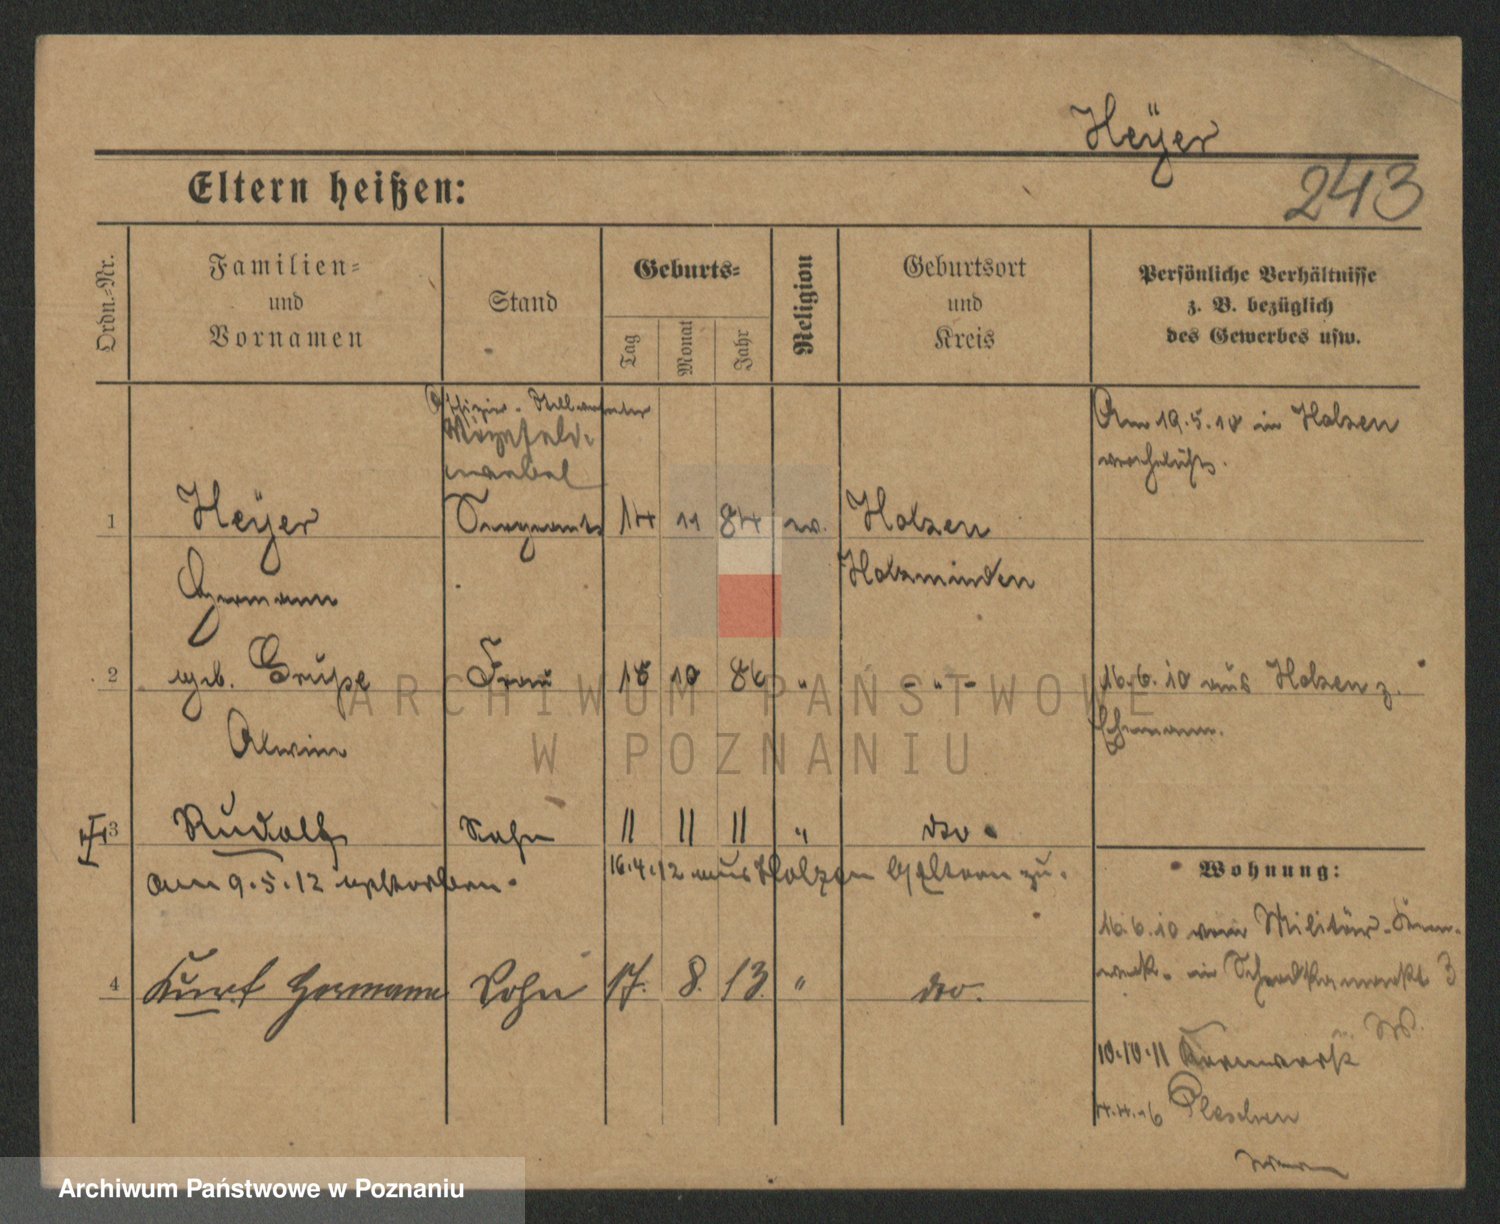 Heÿer
243
Eltern heißen:
Ordn.-Nr.
Familien-
und
Vornamen
Stand
Geburts-
Tag
Monat
Jahr
Religion
Geburtsort
und
Kreis
Persönliche Verhältnisse
z. B. bezüglich
des Gewerbes usw.
Offizier-Stellvertreter
Vizefeld-
webel
Am 19.5.10 in Holzen
verehelicht.
1 Heÿer Sergeant 14 11 84 ev. Holzen
Hermann Holzminden
2 geb. Grupe Frau 15 10 86 " - " - 16.6.10 aus Holzen z.
Alwine Ehemann.
3 Rudolf Sohn 11 11 11 " do
am 9.5.12 verstorben. 16.4.12 aus Holzen b/Eltern zu.
Wohnung:
16.6.10 von Militär-
in 3
4 Kurt Hermann Sohn 17. 8. 13. " do.
W.
10.10.11 Kernwerk
4.4.16 Pleschen
ARCHIWUM PAŃSTWOWE
W POZNANIU
Archiwum Państwowe w Poznaniu